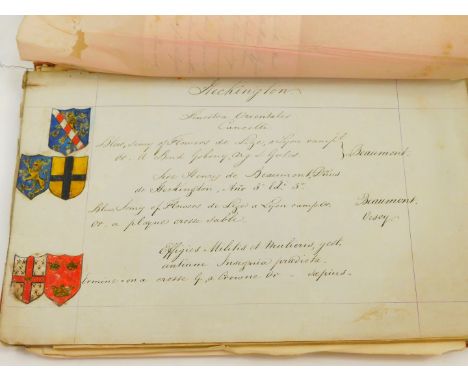 Heckington
Fenestra Orientales
Cancelli
Blew, Semy of Flowers de Lyze, a Lyon rampt
or. a Bend Gobony Arg & Gules.
Beaumont.
Sir Henry de Beaumont, Dñus
de Heckington, Año 5 Ed: 3.
Blew Semy of Flowers de Lyze a Lyon rampt
or, a playne crosse Sable.
Beaumont.
Vescy.
Effigies Militis et Mulieris, gest
antium Insignia prædicta.
Ermine on a crosse G. a Crowne Or